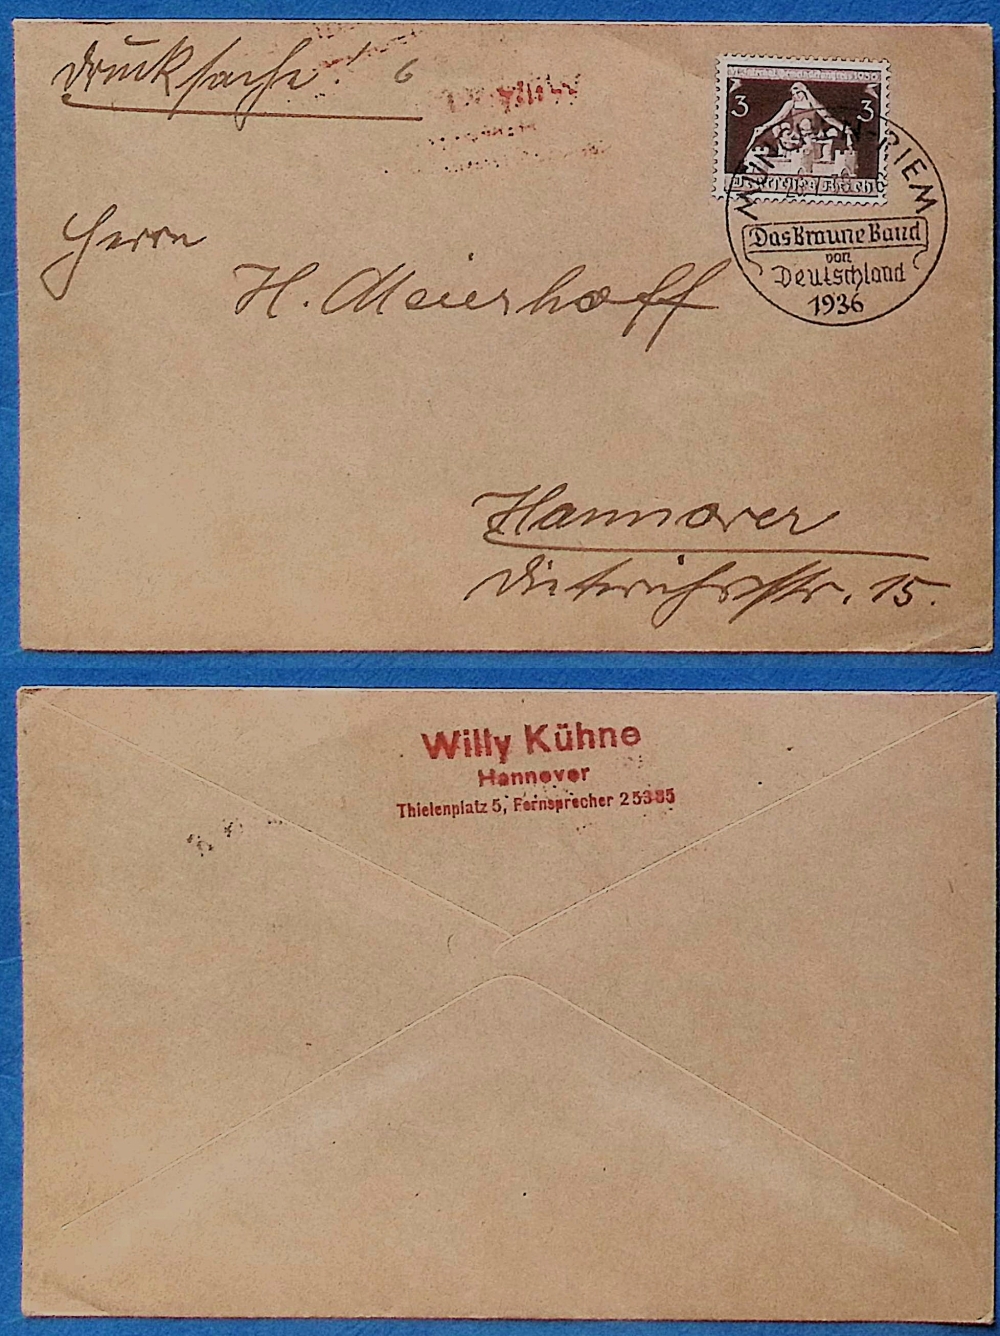 Drucksache! 6
3 3
Deutsches Reich
MÜNCHEN-RIEM
Das Braune Band
von
Deutschland
1936
Herrn
H. Meierhoff
Hannover
Dieterichsstr. 15.
Willy Kühne
Hannover
Thielenplatz 5, Fernsprecher 25385